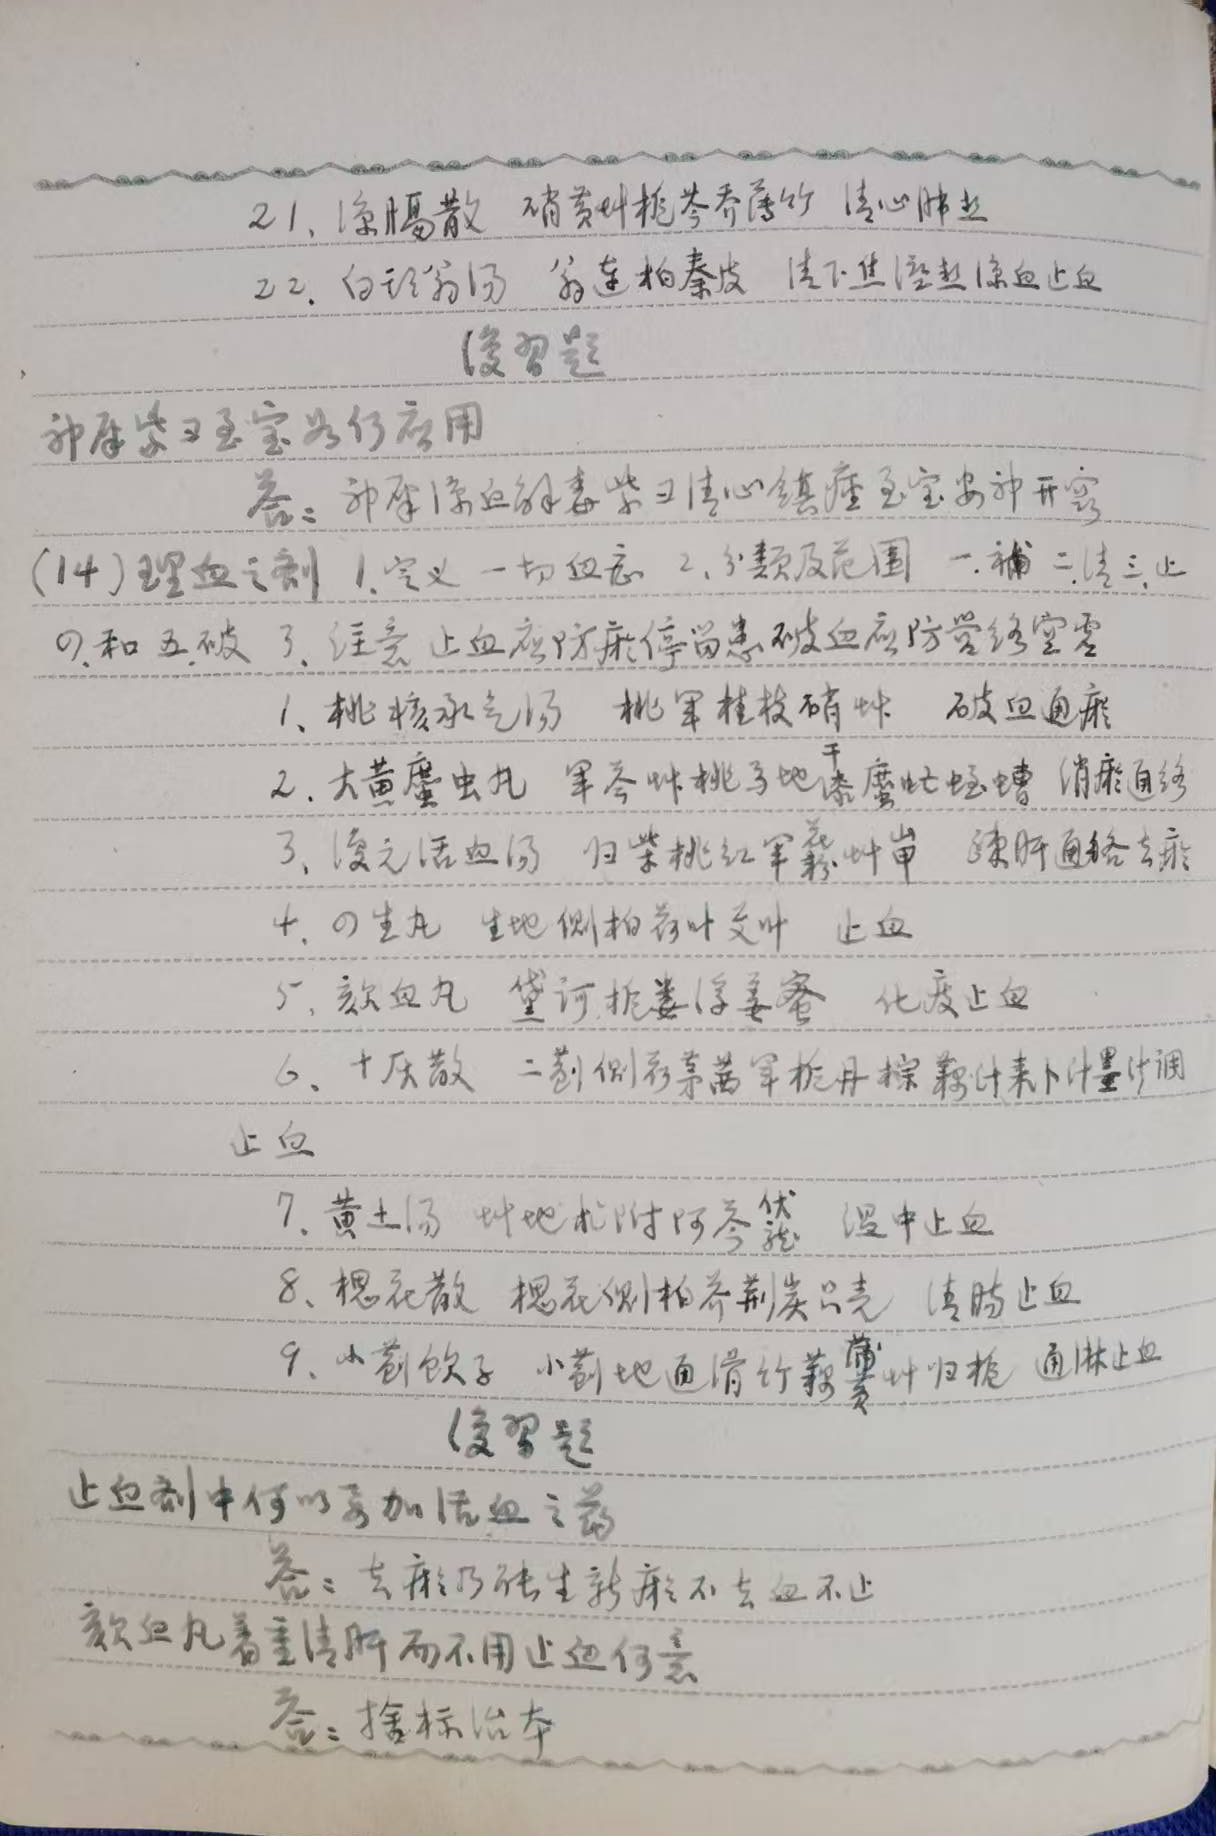 21、凉膈散 硝黄艸栀芩乔薄竹 清心肺热
22、白头翁汤 翁连柏秦皮 清下焦湿热凉血止血
復習题
神犀紫卫至宝如何应用
答：神犀凉血解毒紫卫清心镇痉至宝安神开窍
(14)理血之剂 1、定义 一切血症 2、分類及范围 一、補 二、清 三、止
四、和 五、破 3、注意 止血应防瘀停留患破血应防营络空虚
1、桃核承气汤 桃军桂枝硝艸 破血通瘀
2、大黄䗪虫丸 军芩艸桃芍地干漆䗪虻蛭螬 消瘀通络
3、復元活血汤 归柴桃红军花粉艸甲 疎肝通络去瘀
4、四生丸 生地侧柏荷叶艾叶 止血
5、欬血丸 黛诃栀蒌浮姜蜜 化痰止血
6、十灰散 二蓟侧荷茅茜军栀丹棕藕汁来卜汁墨汁调
止血
7、黄土汤 艸地术附阿芩伏龙 温中止血
8、槐花散 槐花侧柏芥荆炭只壳 清肠止血
9、小蓟饮子 小蓟地通滑竹藕蒲黄艸归栀 通淋止血
復習题
止血剂中何以要加活血之药
答：去瘀乃能生新瘀不去血不止
欬血丸着重清肝而不用止血何意
答：捨标治本